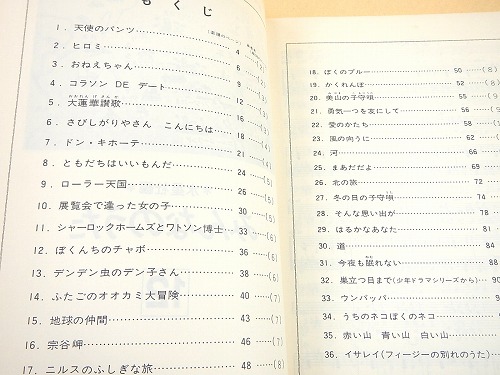 もくじ
1. 天使のパンツ 4
2. ヒロミ 6
3. おねえちゃん 9
4. コラソン DE デート 12
5. 大蓮華讃歌 16
6. さびしがりやさん こんにちは 18
7. ドン・キホーテ 21 (4)
8. ともだちはいいもんだ 24 (5)
9. ローラー天国 26 (5)
10. 展覧会で逢った女の子 30 (5)
11. シャーロックホームズとワトソン博士 33 (6)
12. ぼくんちのチャボ 36 (6)
13. デンデン虫のデン子さん 38 (6)
14. ふたごのオオカミ大冒険 40 (7)
15. 地球の仲間 43 (7)
16. 宗谷岬 46 (7)
17. ニルスのふしぎな旅 48 (8)
18. ぼくのプルー 50 (8)
19. かくれんぼ 52 (8)
20. 美山の子守唄 55 (9)
21. 勇気一つを友にして 56 (9)
22. 愛のかたち 58
23. 風の向うに 62
24. 河 66
25. まあだだよ 69
26. 北の旅 72
27. 冬の日の子守唄 74
28. そんな思い出が 78
29. はるかなあなた 81
30. 道 84
31. 今夜も眠れない 88
32. 巣立つ日まで(少年ドラマシリーズから)
33. ウンパッパ
34. うちのネコぼくのネコ
35. 赤い山 青い山 白い山
36. イサレイ(フィージーの別れのうた)